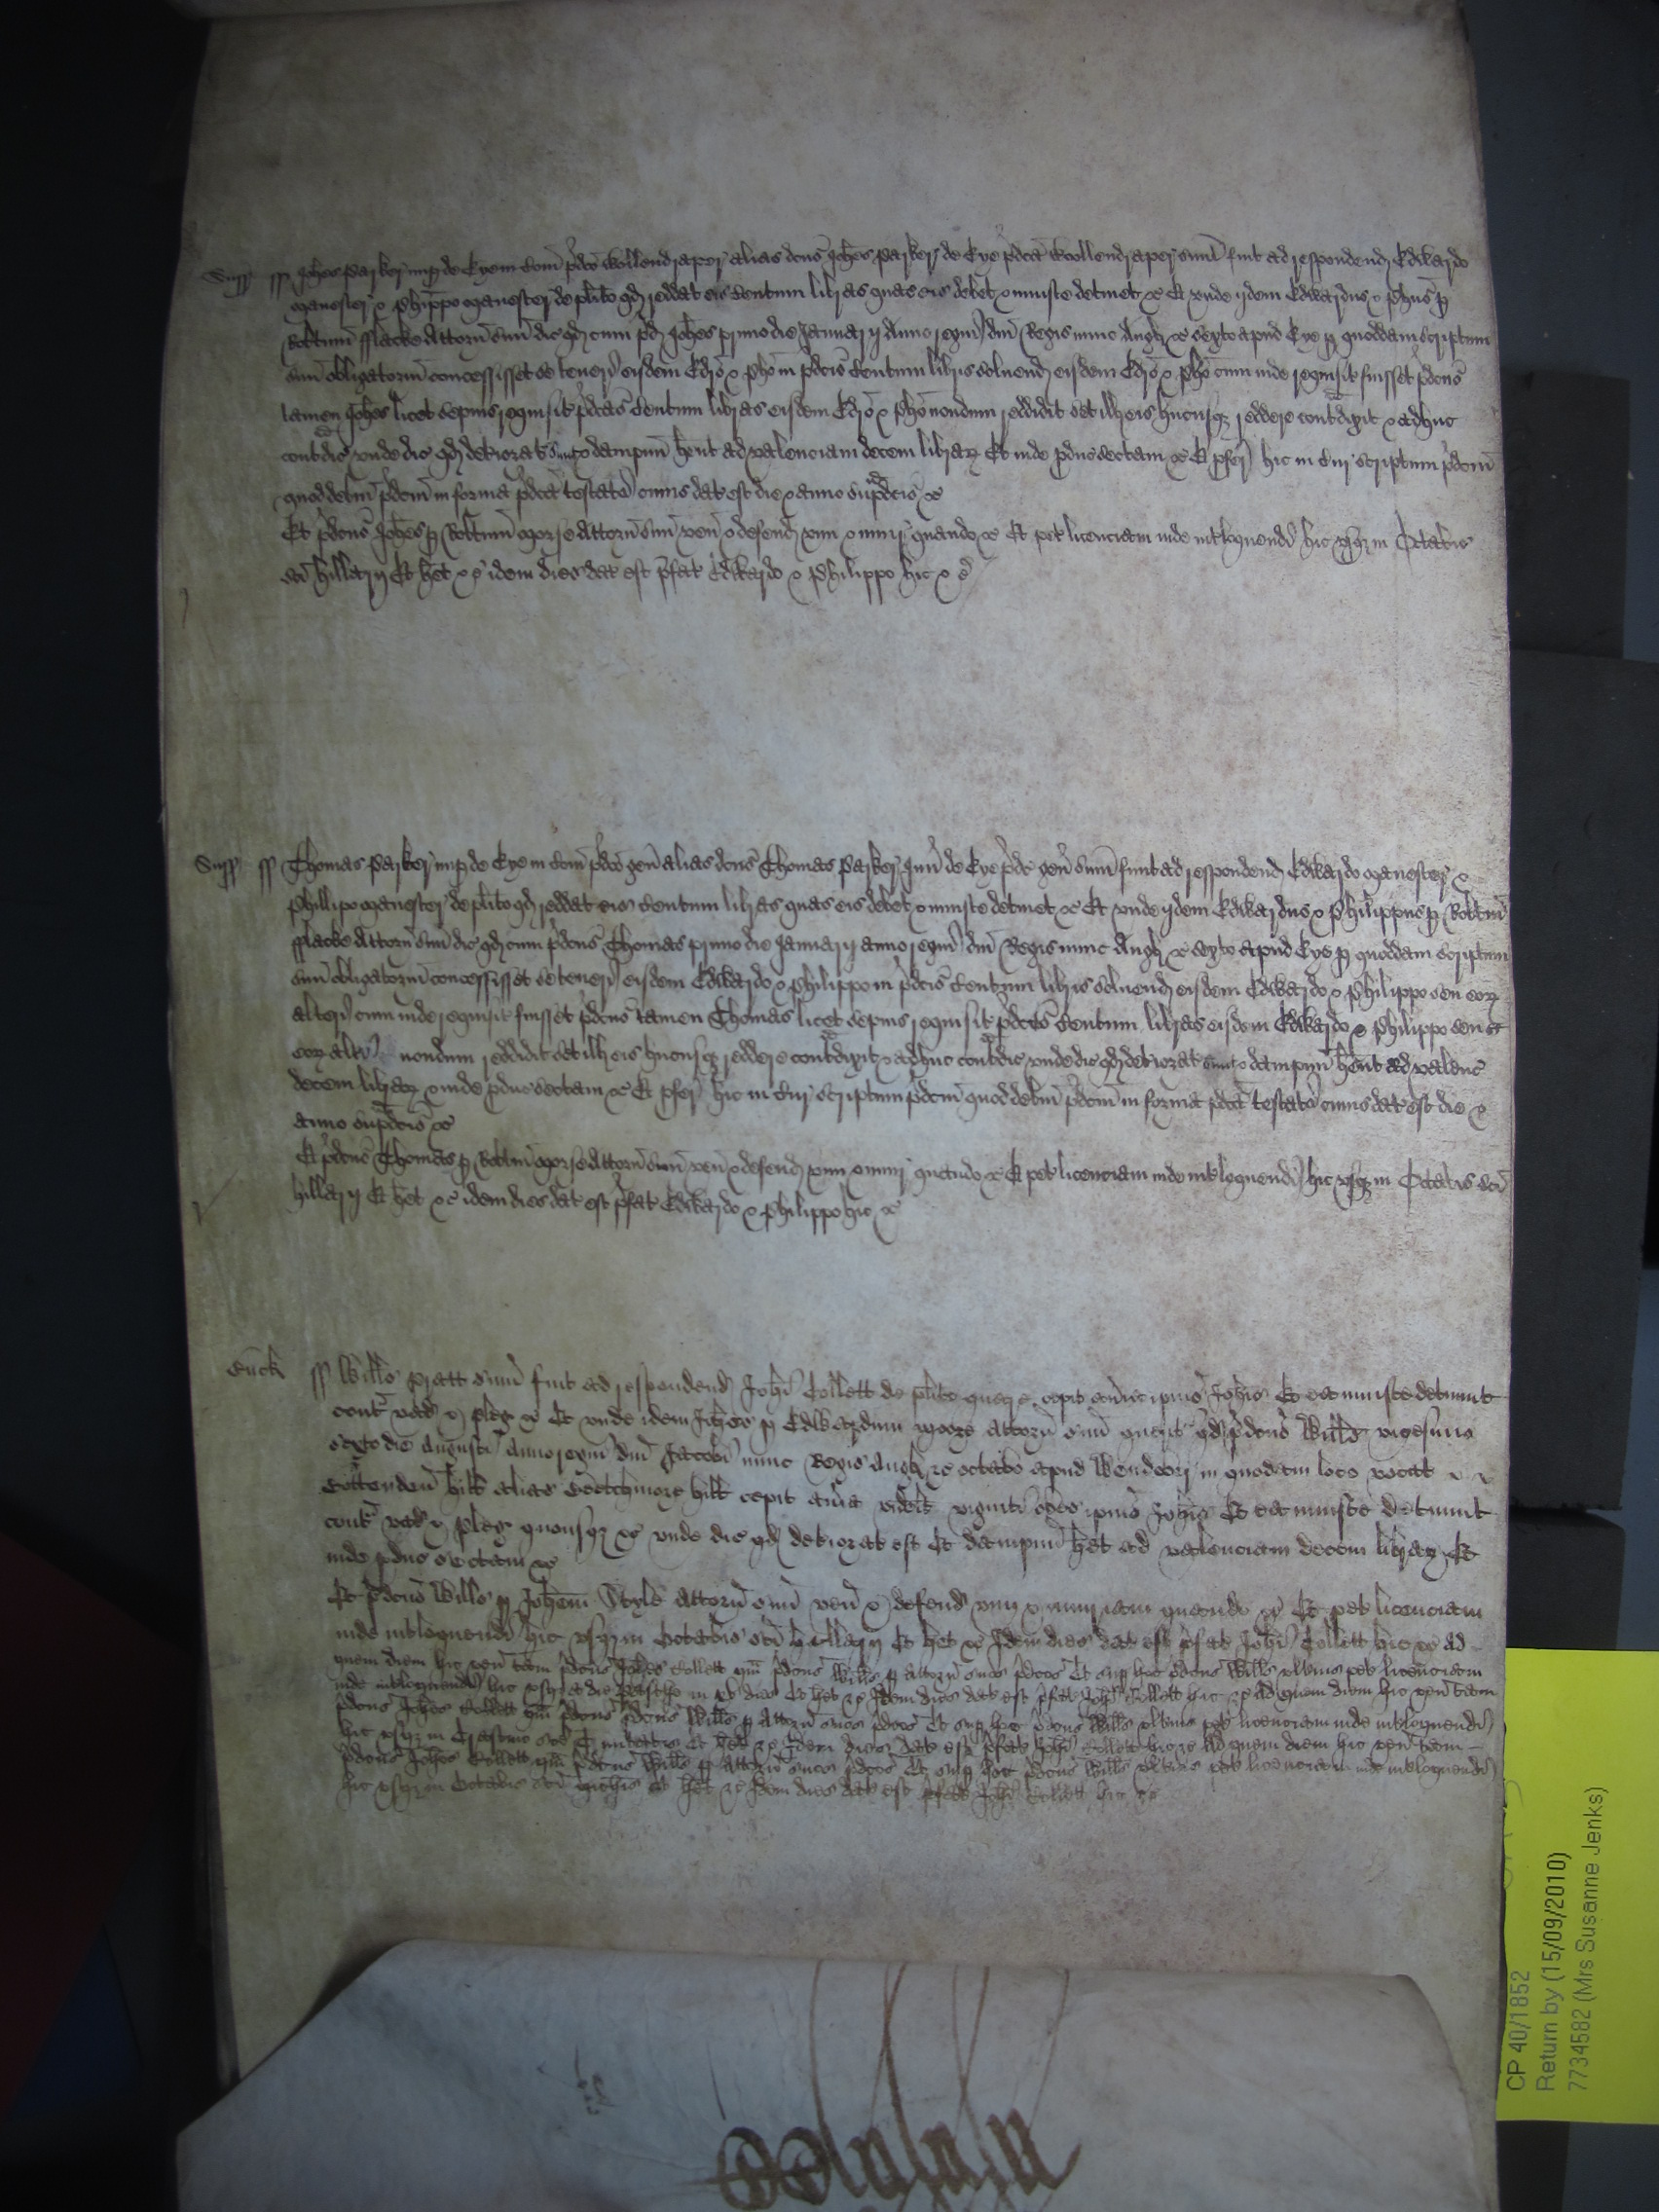 Suff ss Johes Parker nup de Eye in Com pdco Wollendraper alias dcus Johes Parker de Eye pdca Woollendraper sum fuit ad respondend Edwardo
Manester & Phippo Manester de plito qd reddat eis Centum libras quas eis debet & iniuste detinet &c Et unde ijdem Edwardus & Phus p
Robtum fflacke Attorn suu dic qd cum pd Johes primo die Januarij Anno regni dni Regis nunc Angl &c sexto apud Eye p quoddam scriptum
suu obligatoriu concessisset se teneri eisdem Edro & Pho in pdcis Centum libris solvend eisdem Edro & Pho cum inde requisit fuisset pdcus
tamen Johes licet sepius requisit pdcas Centum libras eisdem Edro & Pho nondum reddidit set ill eis hucusqz reddere contradixit & adhuc
contradic unde dic qd deteriorat sunt & dampnu hent ad valenciam decem librar Et inde pduc sectam &c Et pfer hic in Cur scriptum pdcm
quod debm pdcm in forma pdca testat cuius dat est die & anno supradcis &c
Et pdcus Johes p Robtum Morse Attorn suu ven & defend vim & iniur quando &c Et pet licenciam inde intloquendi hic usqz in Octabis
sci Hillarij Et het &c idem dies dat est pfat Edwardo & Philippo hic &c
Suff ss Thomas Parker nup de Eye in Com pdco gen alias dcus Thomas Parker Jun de Eye pdc gen sum fuit ad respondend Edwardo Manester &
Phillipo Manester de plito qd reddat eis Centum libras quas eis debet & iniuste detinet &c Et unde ijdem Edwardus & Philippus p Robtm
fflacke Attorn suu dic qd cum pdcus Thomas primo die Januarij anno regni dni Regis nunc Angl &c sexto apud Eye p quoddam scriptum
suu obligatoriu concessisset se teneri eisdem Edwardo & Philippo in pdcis Centum libris solvend eisdem Edwardo & Philippo seu eorz
alteri cum inde requisit fuisset pdcus tamen Thomas licet sepius requisit pdcas Centum libras eisdem Edwardo & Philippo seu
eorz altri nondum reddidit set ill eis hucusqz reddere contradixit & adhuc contradic unde dic qd deteriorat sunt & dampnu hent ad valenc
decem librarz & inde pduc sectam &c Et pfer hic in Cur scriptum pdcm quod debm pdcm in forma pdca testat cuius dat est die &
anno supradcis &c
Et pdcus Thomas p Robtm Morse Attorn suu ven & defend vim & iniur quando &c Et pet licenciam inde intloquendi hic usqz in Octabis sci
Hillarij Et het &c idem dies dat est pfat Edwardo & Philippo hic &c
Buck ss Willus Pratt sum fuit ad respondend Johi Collett de plito quare cepit averia ipius Johis Et ea iniuste detinuit
cont vad & pleg &c Et unde idem Johes p Edwardum Moore Attorn suu querit qd pdcus Willus vicesimo
sexto die Augusti Anno regni dni Jacobi nunc Regis Angl &c octavo apud Wendovr in quodam loco vocat
Cottenden hill alias Cretchmore hill cepit averia videlt viginti oves ipius Johis Et ea iniuste detinuit
cont vad & pleg quousqz &c unde dic qd deteriorat est Et dampnu het ad valenciam decem librarz Et
inde pduc sectam &c
Et pdcus Willus p Johem Style Attorn suu ven & defend vim & iniuriam quando &c Et pet licenciam
inde intloquendi hic usqz in Octabis sci Hillarij Et het &c Idem dies dat est pfat Johi Collett hic &c Ad
quem diem hic ven tam pdcus Johes Collett qm pdcus Willus p Attorn suos pdcos Et sup hoc pdcus Willus ulterius pet licenciam
inde intloquendi hic usqz a die Pasche in xv dies Et het &c Idem dies dat est pfat Johi Collett hic &c Ad quem diem hic ven tam
pdcus Johes Collett qm pdcus Willus p Attorn suos pdcos Et sup hoc pdcus Willus ulterius pet licenciam inde intloquendi
hic usqz in Crastino sce Trinitatis Et het &c Idem dies dat est pfat Johi Collett hic &c Ad quem diem hic ven tam
pdcus Johes Collett qm pdcus Willus p Attorn suos pdcos Et sup hoc pdcus Willus ulterius pet licenciam inde intloquendi
hic usqz in Octabis sci Michis Et het &c Idem dies dat est pfat Johi Collett hic &c
CP 40/1852
Return by (15/09/2010)
7734582 (Mrs Susanne Jenks)